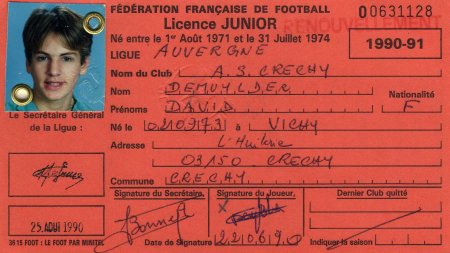 FÉDÉRATION FRANÇAISE DE FOOTBALL
00631128
Licence JUNIOR
RENOUVELLEMENT
Né entre le 1er Août 1971 et le 31 Juillet 1974
1990-91
LIGUE AUVERGNE
Nom du Club A.S. CRECHY
Nom DEMUYLDER
Nationalité
Prénoms DAVID F
Le Secrétaire Général
de la Ligue :
Né le 02109731 à VICHY
Adresse
03150 CRECHY
Commune CRECHY
Signature du Secrétaire
Signature du Joueur
Dernier Club quitté
25 AOUT 1990
Date de Signature 22 06 90
Indiquer la saison
3615 FOOT : LE FOOT PAR MINITEL